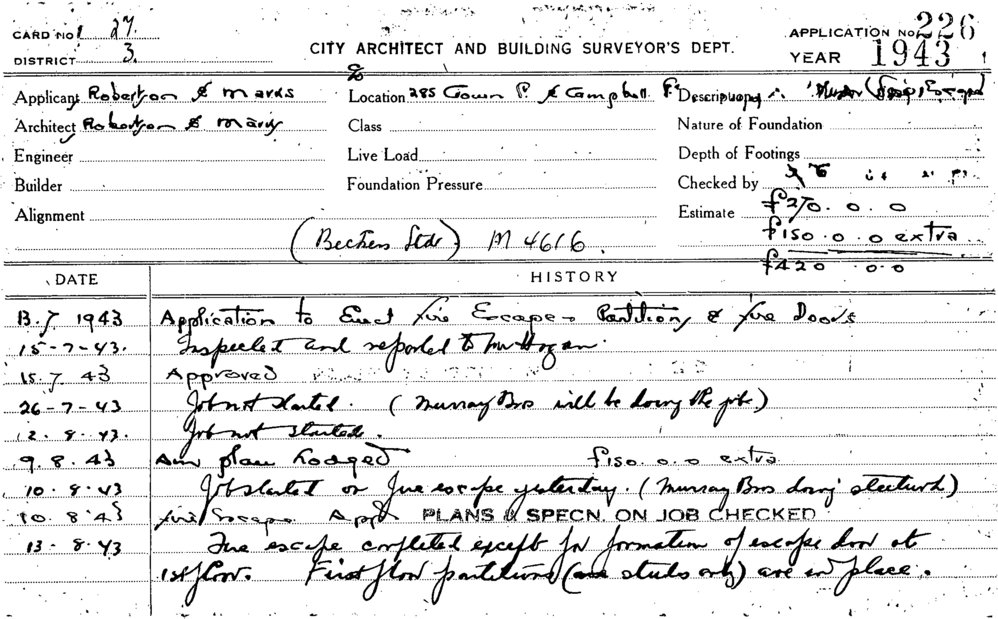 CARD No 27.
DISTRICT 3.
CITY ARCHITECT AND BUILDING SURVEYOR'S DEPT.
APPLICATION No. 226
YEAR 1943
Applicant Robertson & Marks
Location 285 Crown St & Campbell St
Description
Architect Robertson & Marks
Class
Nature of Foundation
Engineer
Live Load
Depth of Footings
Builder
Foundation Pressure
Checked by
Alignment
Estimate £270.0.0
(Beckers Ltd) M 4616.
£150.0.0 extra
£420 0.0
DATE
HISTORY
13.7.1943 Application to Erect fire Escapes Partitions & fire Doors
15-7-43. Inspected and reported to Mr Hogan.
15.7.43 Approved
26-7-43 Job not started. (Murray Bros will be doing the job)
2.8.43. Job not started.
9.8.43 Am plan Lodged £150.0.0 extra
10.8.43 Job started on fire escape yesterday. (Murray Bros doing steelwork)
10.8.43 fire Escape Appd PLANS & SPECN. ON JOB CHECKED
13-8-43 Fire escape completed except for formation of escape door at
1st floor. First floor partitions (are studs only) are in place.